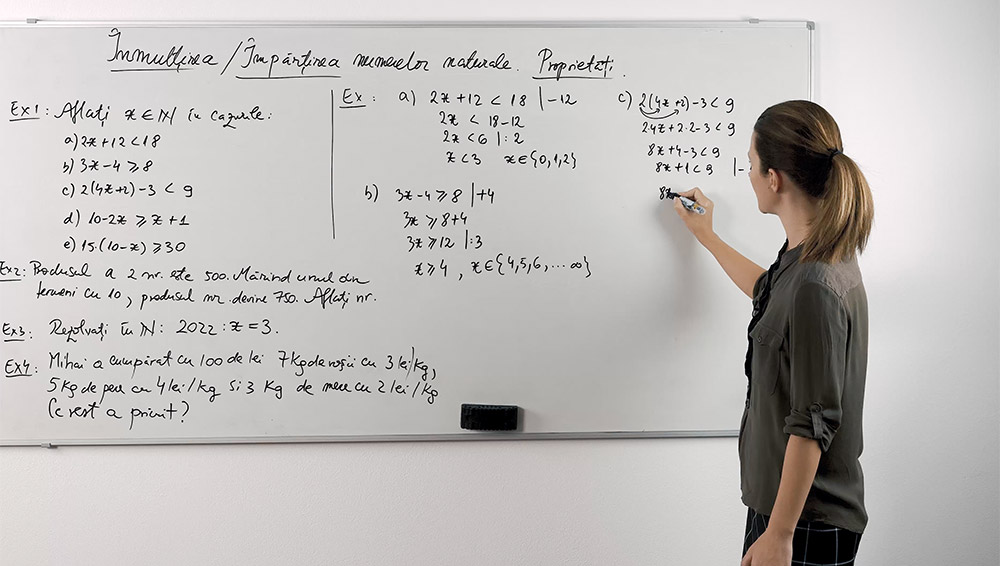 Înmulțirea / Împărțirea numerelor naturale. Proprietăți.
Ex1: Aflați x ∈ ℕ în cazurile:
a) 2x+12 < 18
b) 3x-4 ⩾ 8
c) 2(4x+2)-3 < 9
d) 10-2x ⩾ x+1
e) 15·(10-x) ⩾ 30
Ex2: Produsul a 2 nr. este 500. Mărind unul din
termeni cu 10, produsul nr. devine 750. Aflați nr.
Ex3: Rezolvați în ℕ: 2022 : x = 3.
Ex4: Mihai a cumpărat cu 100 de lei 7 kg de roșii cu 3 lei/kg,
5 kg de pere cu 4 lei/kg și 3 kg de mere cu 2 lei/kg
Ce rest a primit?
Ex: a) 2x+12 < 18 |-12
2x < 18-12
2x < 6 |:2
x < 3 x ∈ {0,1,2}
b) 3x-4 ⩾ 8 |+4
3x ⩾ 8+4
3x ⩾ 12 |:3
x ⩾ 4 , x ∈ {4,5,6, ... ∞}
c) 2(4x+2)-3 < 9
2·4x+2·2-3 < 9
8x+4-3 < 9
8x+1 < 9 |-
8x